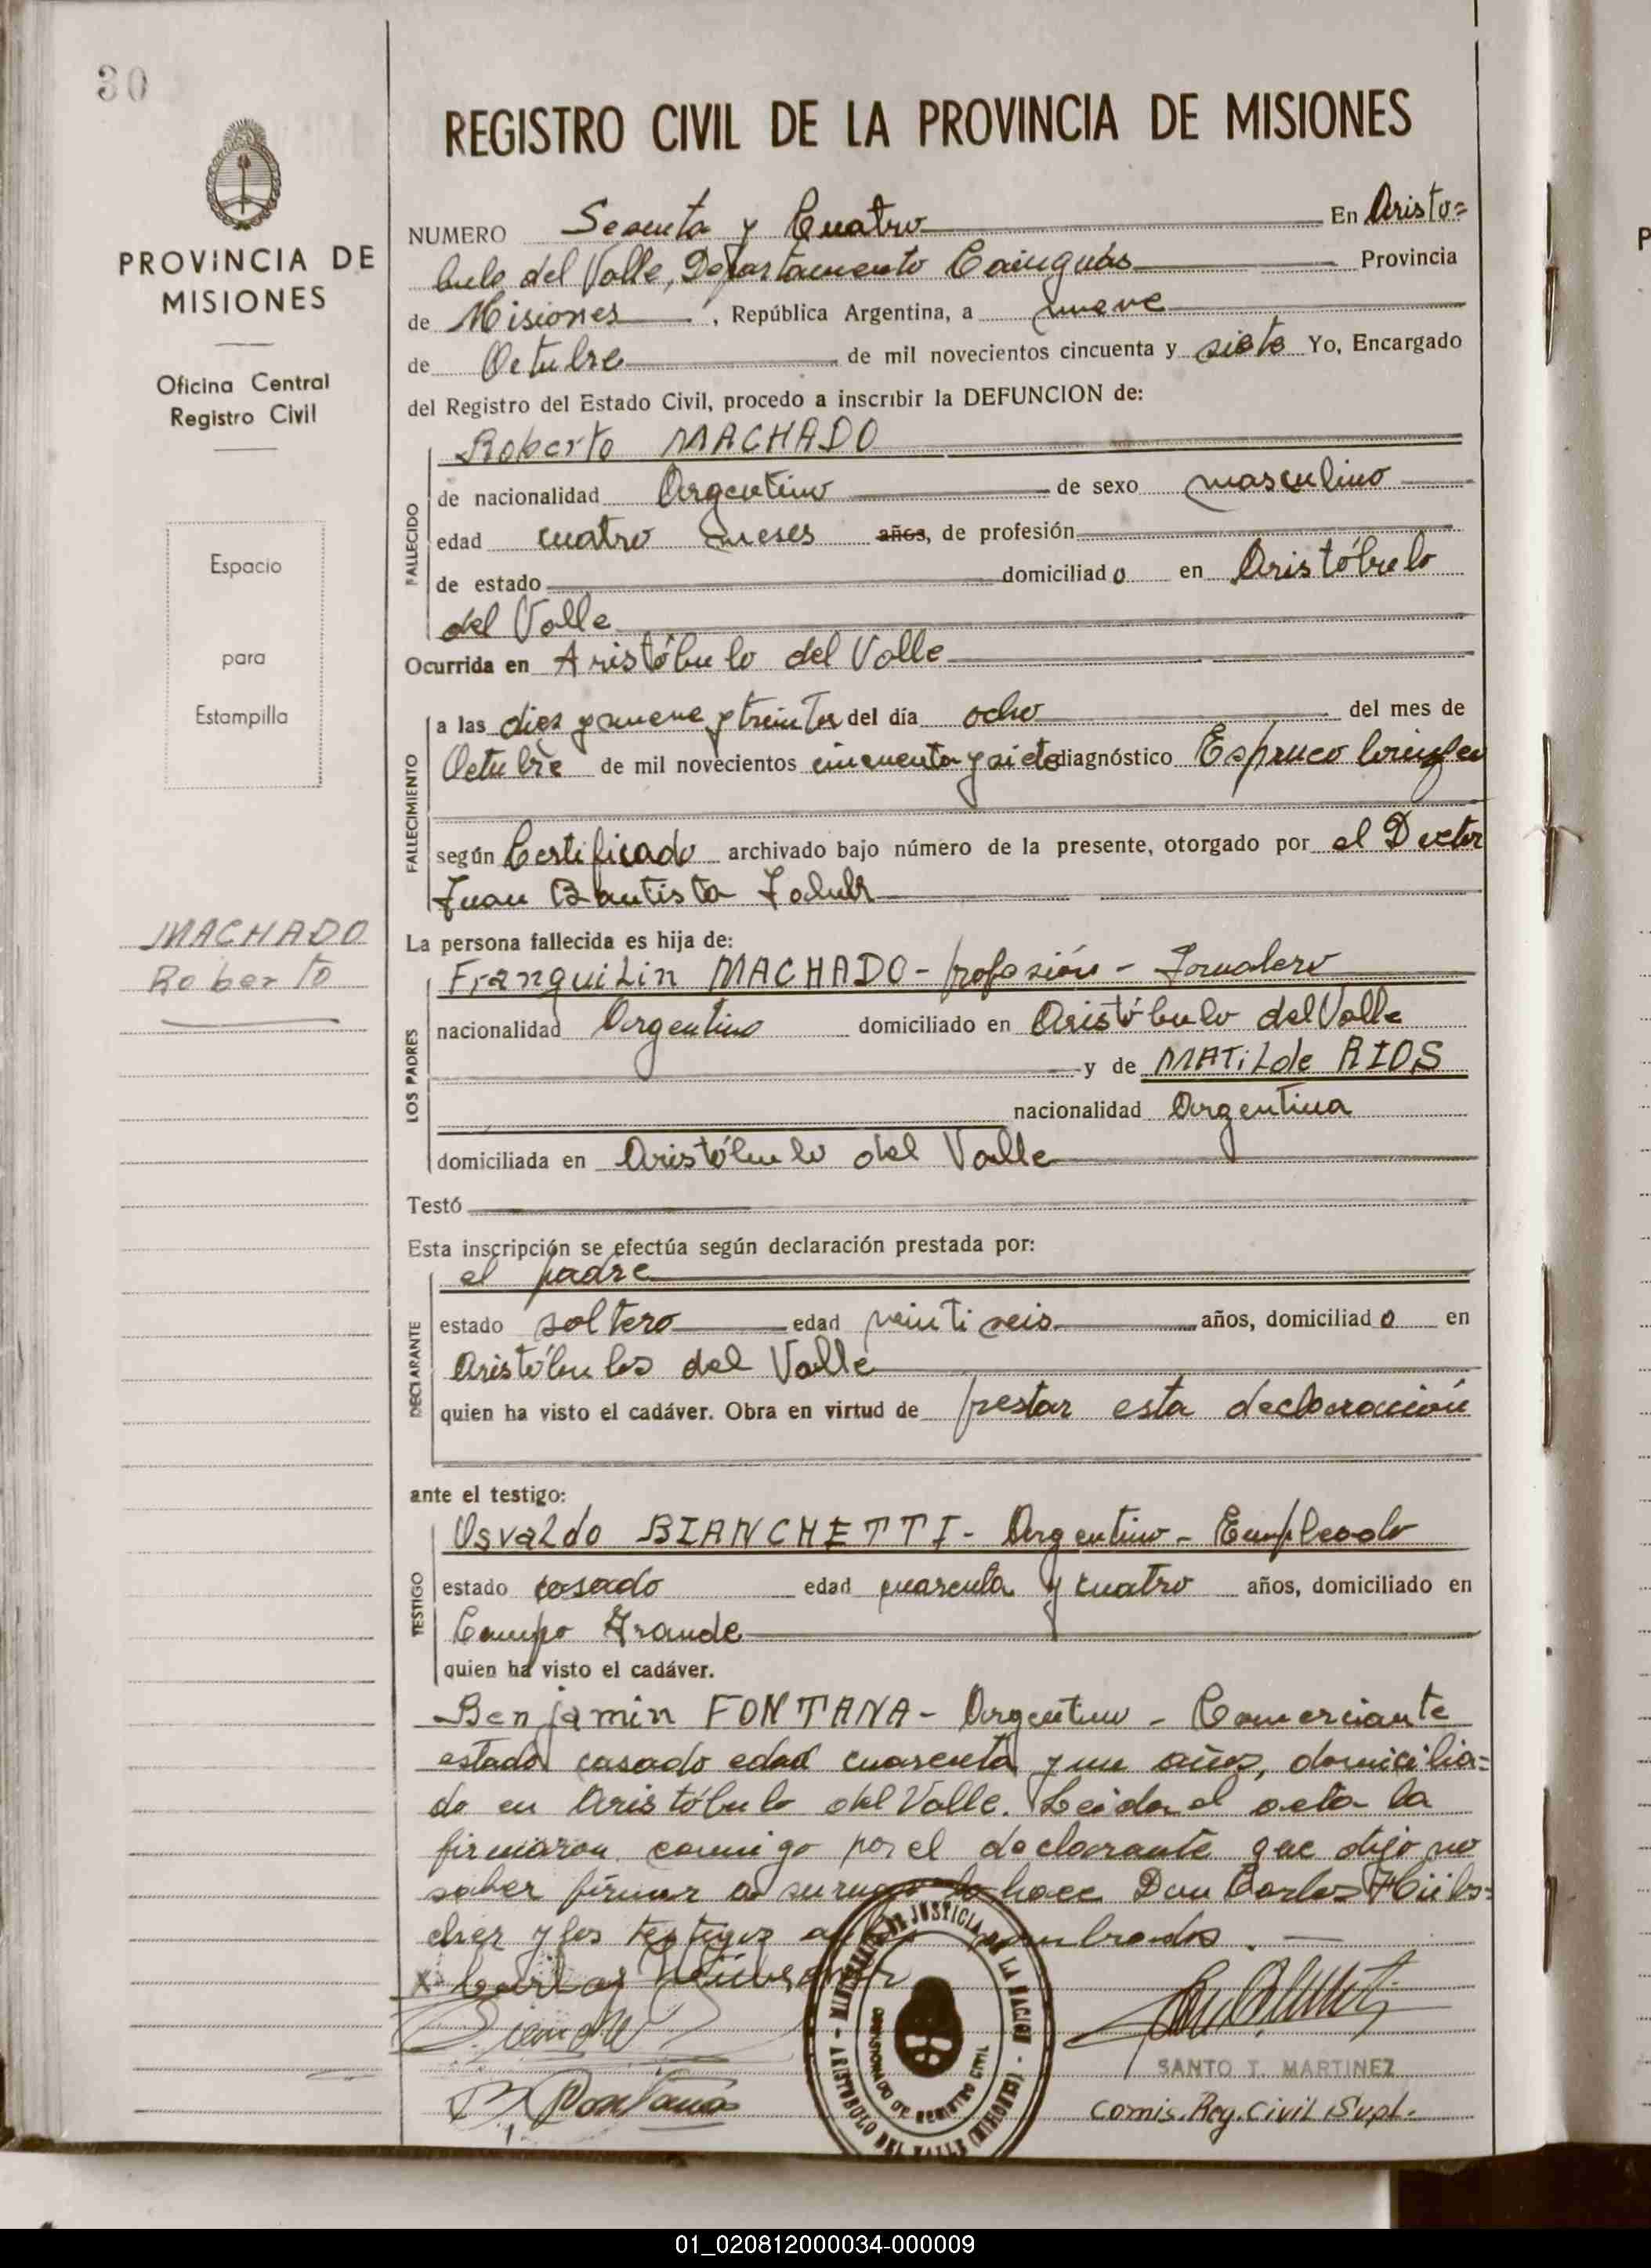 30
PROVINCIA DE
MISIONES
Oficina Central
Registro Civil
Espacio
para
Estampilla
MACHADO
Roberto
REGISTRO CIVIL DE LA PROVINCIA DE MISIONES
NUMERO Sesenta y Cuatro En Aristo=
bulo del Valle, Departamento Cainguás Provincia
de Misiones, República Argentina, a nueve
de Octubre de mil novecientos cincuenta y siete Yo, Encargado
del Registro del Estado Civil, procedo a inscribir la DEFUNCION de:
Roberto MACHADO
FALLECIDO
de nacionalidad Argentino de sexo masculino
edad cuatro meses años, de profesión
de estado domiciliado en Aristóbulo
del Valle
Ocurrida en Aristóbulo del Valle
FALLECIMIENTO
a las diez y nueve y treinta del día ocho del mes de
Octubre de mil novecientos cincuenta y siete diagnóstico
según Certificado archivado bajo número de la presente, otorgado por el Doctor
Juan Bautista
La persona fallecida es hija de:
LOS PADRES
Franquilin MACHADO - profesión - Jornalero
nacionalidad Argentino domiciliado en Aristóbulo del Valle
y de MATiLde RIOS
nacionalidad Argentina
domiciliada en Aristóbulo del Valle
Testó
Esta inscripción se efectúa según declaración prestada por:
el padre
DECLARANTE
estado soltero edad veintiseis años, domiciliado en
Aristóbulos del Valle
quien ha visto el cadáver. Obra en virtud de prestar esta declaración
ante el testigo:
TESTIGO
Osvaldo BIANCHETTI - Argentino - Empleado
estado casado edad cuarenta y cuatro años, domiciliado en
Campo Grande
quien ha visto el cadáver.
Benjamin FONTANA - Argentino - Comerciante
estado casado edad cuarenta y un años, domicilia=
do en Aristóbulo del Valle. Leida el acta la
firmaron conmigo por el declarante que dijo no
saber firmar a su ruego lo hace Don Carlos Hübs=
cher y los testigos nombrados.
x Carlos
B. Fontana
MINISTERIO DE JUSTICIA DE LA NACION - ARISTOBULO DEL VALLE (MISIONES) -
COMISIONADO DE REGISTRO CIVIL
SANTO I. MARTINEZ
Comis. Reg. Civil Supl.
01_020812000034-000009